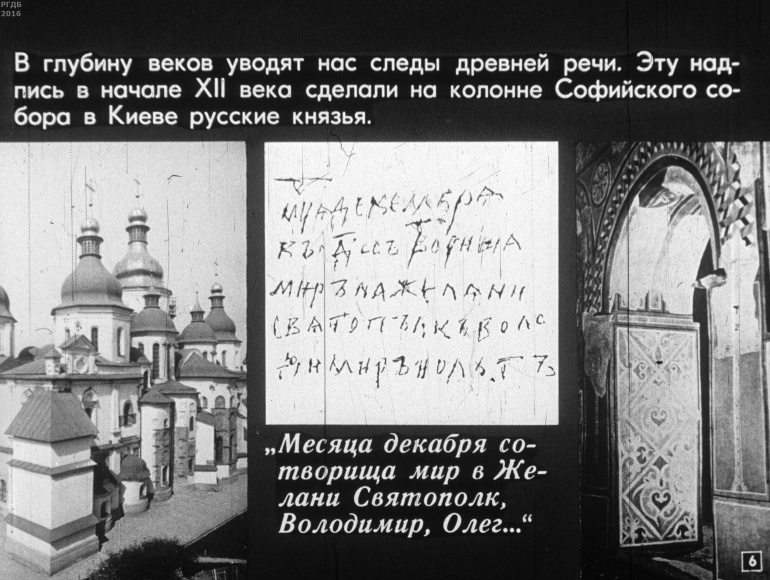 РГДБ
2016
В глубину веков уводят нас следы древней речи. Эту над-
пись в начале XII века сделали на колонне Софийского со-
бора в Киеве русские князья.
МЦАДЕКЕМБРА
МИРЪНАЖЕЛАНИ
СВАТОПЪЛКЪВОЛО
„Месяца декабря со-
творища мир в Же-
лани Святополк,
Володимир, Олег...“
6